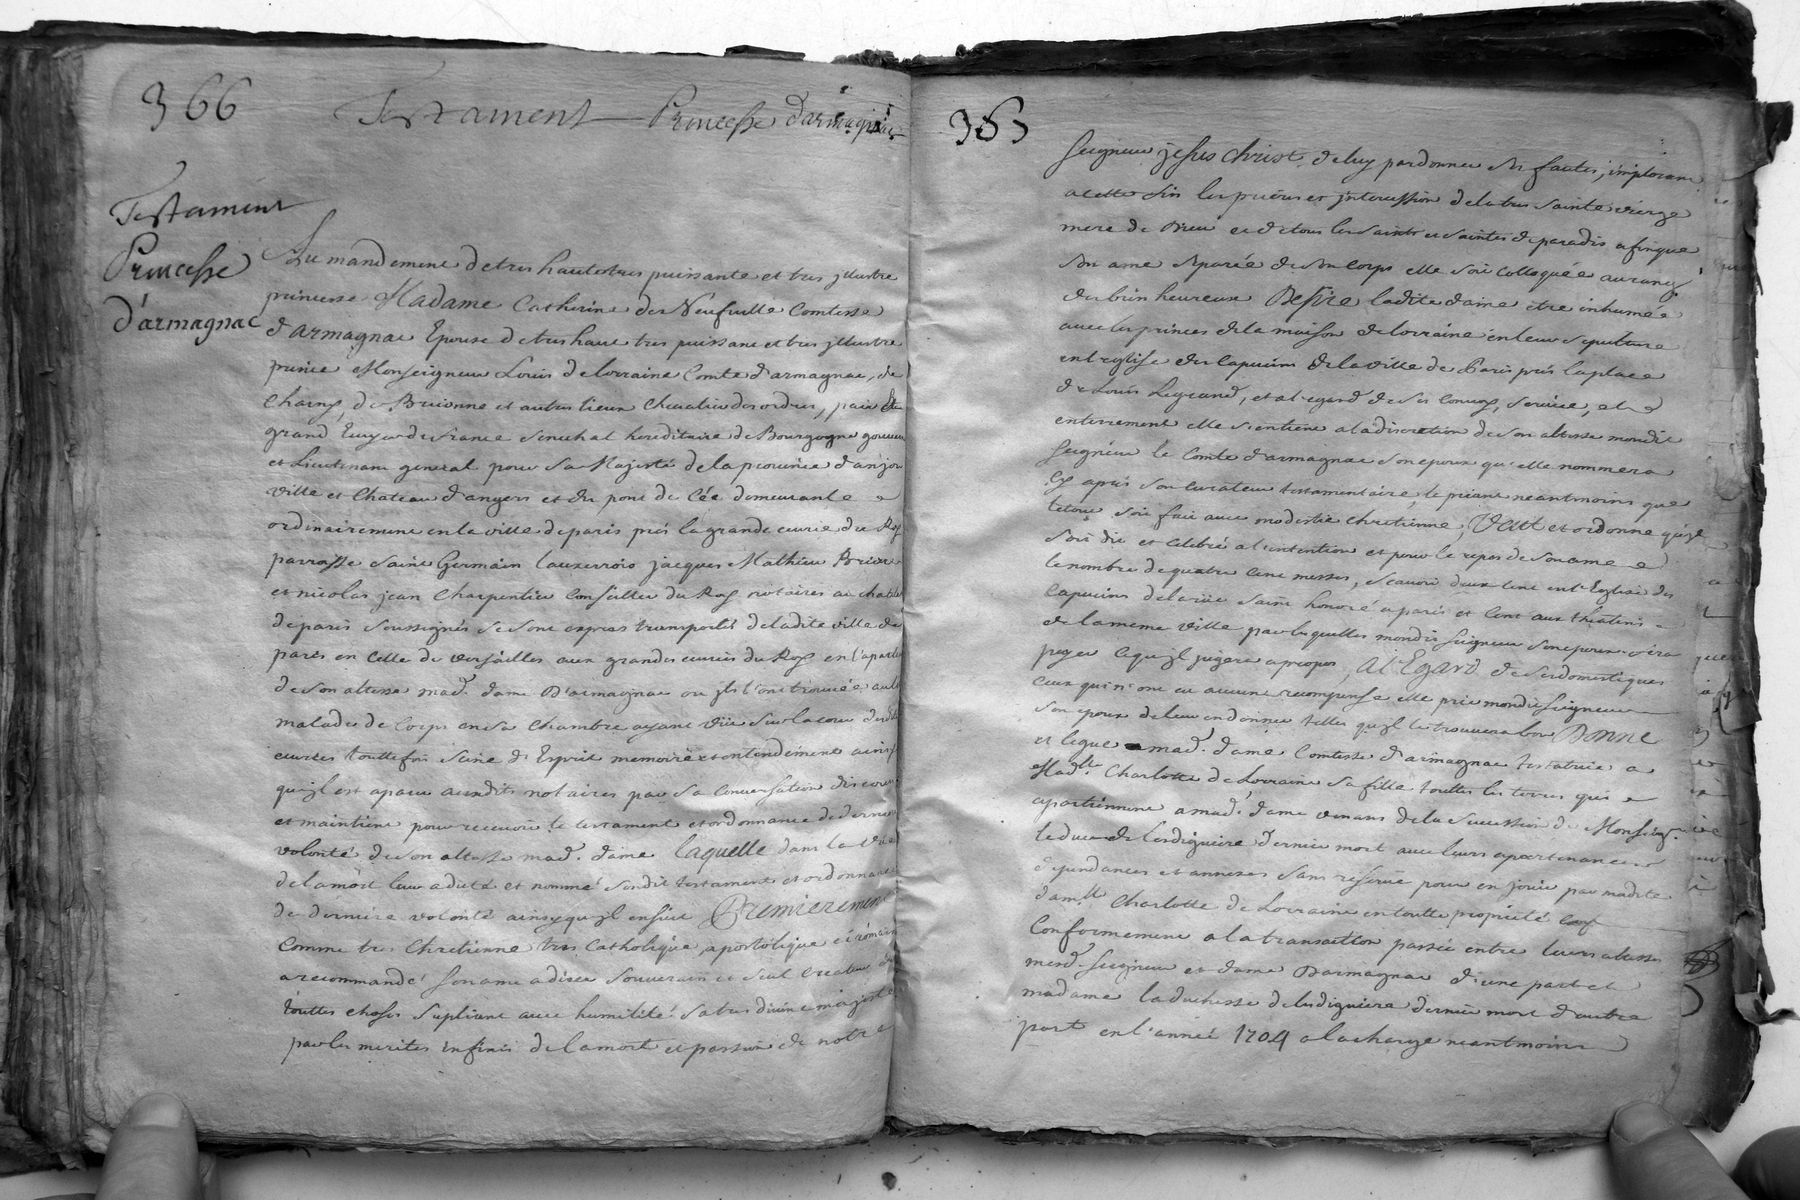 366
Testament Princesse d'armagnac
Testament
Princesse
d'armagnac
Au mandement de tres haute tres puissante et tres jllustre
princesse Madame Catherine de Neufville Comtesse
d'armagnac Epouse de tres haut tres puissant et tres jllustre
prince Monseigneur Louis de lorraine Comte d'armagnac, de
Charny, de Brionne et autres lieux Chevalier des ordres, pair et
grand Ecuyer de france senechal hereditaire de Bourgogne gouverneur
et Lieutenant general pour sa Majesté de la province d'anjou
ville et Chateau d'angers et du pont de Cée demeurante
ordinairement en la ville de paris prés la grande ecurie du Roy
parroisse saint Germain lauxerrois jacques Mathieu
et nicolas jean Charpentier Conseillers du Roy notaires au chatelet
de paris soussignés se sont exprés transportés de ladite ville de
paris en celle de versailles aux grandes ecuries du Roy en l'apartement
de son altesse mad. dame D'armagnac ou jls l'ont trouvée au lit
malade de Corps en sa chambre ayant vüe sur la cour desdites
ecuries touttefois saine d'Esprit memoire et entendement ainsy
qu'jl est aparu ausdits notaires par sa Conversation discours
et maintient pour recevoir le testament et ordonnance de derniere
volonté de son altesse mad. dame laquelle dans la vüe
de la mort leur a dicté et nommé sondit testament et ordonnance
de derniere volonté ainsy qu'jl ensuit Premierement
Comme tres Chretienne tres Catholique, apostolique et romaine
a recommandé son ame a dieu souverain et seul createur de
touttes choses supliant avec humilité sa tres divine majesté
par les merites infinis de la mort et passion de notre
Seigneur jesus Christ, de luy pardonner ses fautes, implorant
a cette fin les prieres et jntercession de la tres sainte vierge
mere de Dieu et de tous les saints et saintes de paradis afin que
son ame separée de son corps elle soit colloquée au rang
des bien heureux Desire ladite dame etre inhumée
avec les princes de la maison de lorraine en leur sepulture
en l'eglise des Capucins de la ville de Paris prés la place
de Louis Legrand, et a l'egard de ses Convoy, service, et
enterrement elle s'en tient a la discretion de son altesse mondit
seigneur le Comte d'armagnac son epoux qu'elle nommera
Cy aprés son executeur testamentaire, le priant neantmoins que
le tout soit fait avec modestie chretienne, Veut et ordonne qu'jl
soit dit et celebré a l'intention et pour le repos de son ame
le nombre de quatre cent messes, scavoir deux cent en l'Eglise des
Capucins de la rüe saint honoré a paris et Cent aux theatins
de la meme ville par lesquelles mondit seigneur son epoux fera
payer ce qu'jl jugera apropos, A l'Egard de ses domestiques
ceux qui n'ont eu aucune recompense elle prie mondit seigneur
son epoux de leur en donner telles qu'jl le trouvera bon Donne
et legue mad. dame Comtesse d'armagnac testatrice a
Mad.lle Charlotte de Lorraine sa fille touttes les terres qui
apartiennent a mad. dame venans de la succession de Monsieur
le duc de lesdiguiere dernier mort avec leurs apartenances
dependances et annexes sans reserve pour en jouir par madite
dam.lle Charlotte de Lorraine en toutte proprieté
Conformement a la transaction passée entre leurs altesses
mesd. seigneur et dame Darmagnac d'une part et
madame la duchesse de lesdiguiere dernier mort d'autre
part en l'année 1704 a la charge neantmoins